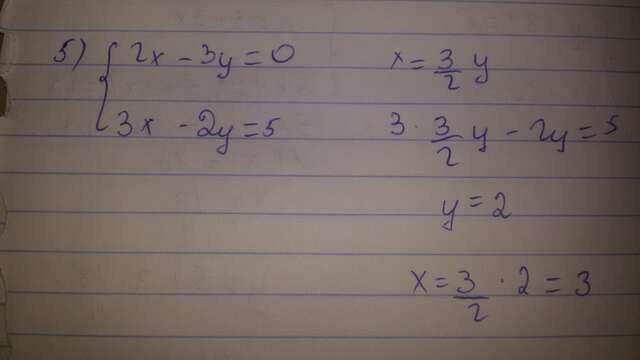 5) { 2x - 3y = 0
3x - 2y = 5
x = 3/2 y
3 · 3/2 y - 2y = 5
y = 2
x = 3/2 · 2 = 3